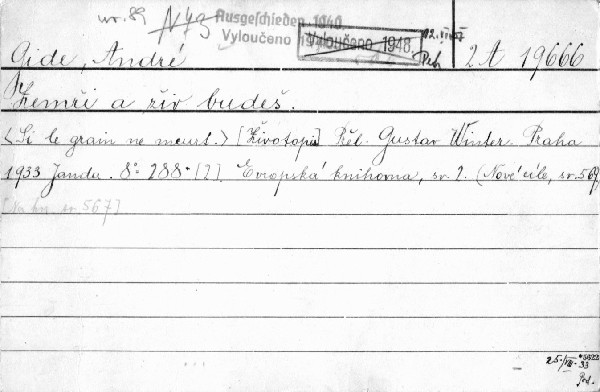 Ausgeschieden 1940
Vyloučeno 19
Vyloučeno 1948.
Gide, André
2 A 19666
Zemři a živ budeš.
<Si le grain ne meurt.> [Životopis] Přel. Gustav Winter. Praha
1933 Janda. 8° 288 + [2]. Evropská knihovna, sv. 2. (Nové cíle, sv. 567)
[Na kn. sv. 567]
25./VIII. 33